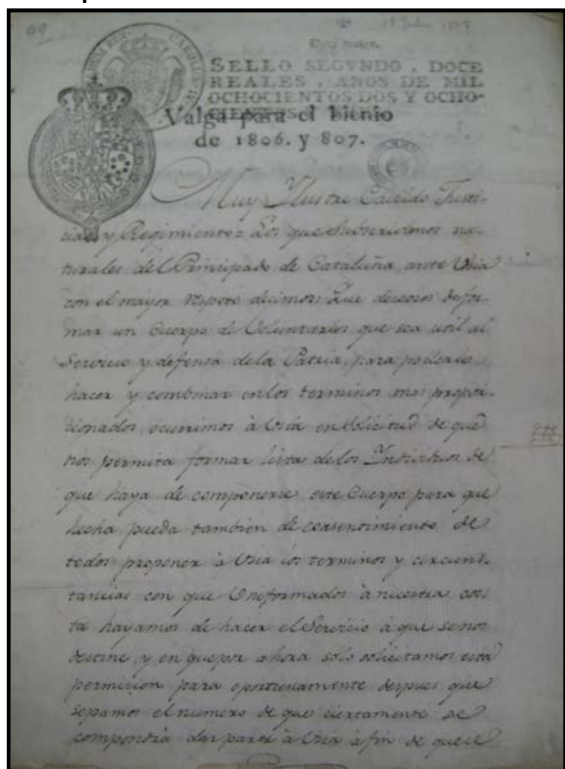 SELLO SEGVNDO, DOCE
REALES, AÑOS DE MIL
OCHOCIENTOS DOS Y OCHO-
CIENTOS
Valga para el bienio
de 1806. y 807.
Muy Ilustre Cavildo Justi-
cia, y Regimiento= Los que subscrivimos na-
turales del Principado de Cataluña, ante Usia
con el mayor respeto decimos: Que deseosos de for-
mar un Cuerpo de Voluntarios que sea util al
Servicio y defensa dela Patria, para poderlo
hacer y combinar en los terminos mas propor-
cionados, ocurrimos à Usia en solicitud de que
nos permita formar lista delos Individuos de
que haya de componerse este Cuerpo para que
hecha pueda tambien de consentimiento de
todos proponer à Usia los terminos y circuns-
tancias con que Uniformados à nuestra cos-
ta hayamos de hacer el Servicio à que senos
destine, y en que por ahora solo solicitamos esta
permision para oportunamente despues que
sepamos el numero de que ciertamente se
compondrà dar parte à Usia à fin de que el